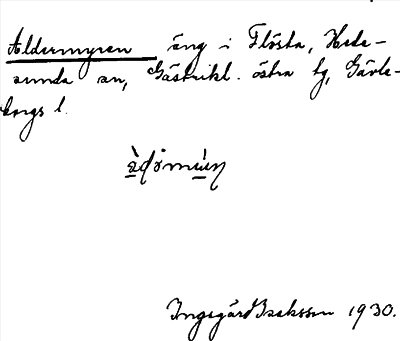 Aldermyren äng i Flästa, Hede-
sunda sn, Gästrikl. östra tg, Gävle-
borgs l.
Ingegärd Isaksson 1930.